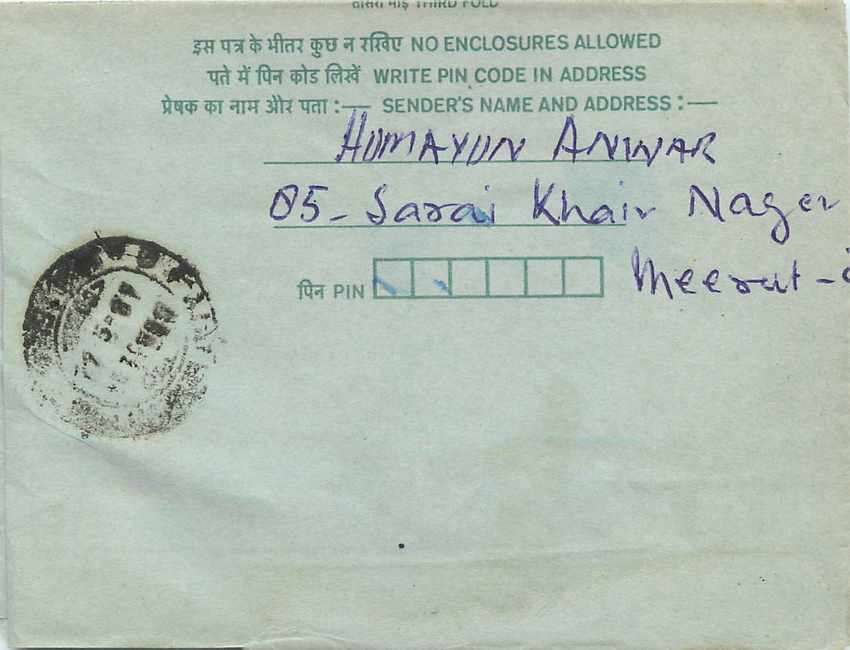 तीसरा मोड़ THIRD FOLD
इस पत्र के भीतर कुछ न रखिए NO ENCLOSURES ALLOWED
पते में पिन कोड लिखें WRITE PIN CODE IN ADDRESS
प्रेषक का नाम और पता :— SENDER'S NAME AND ADDRESS :—
HUMAYUN ANWAR
05- Sarai Khair Nager
पिन PIN Meerut-